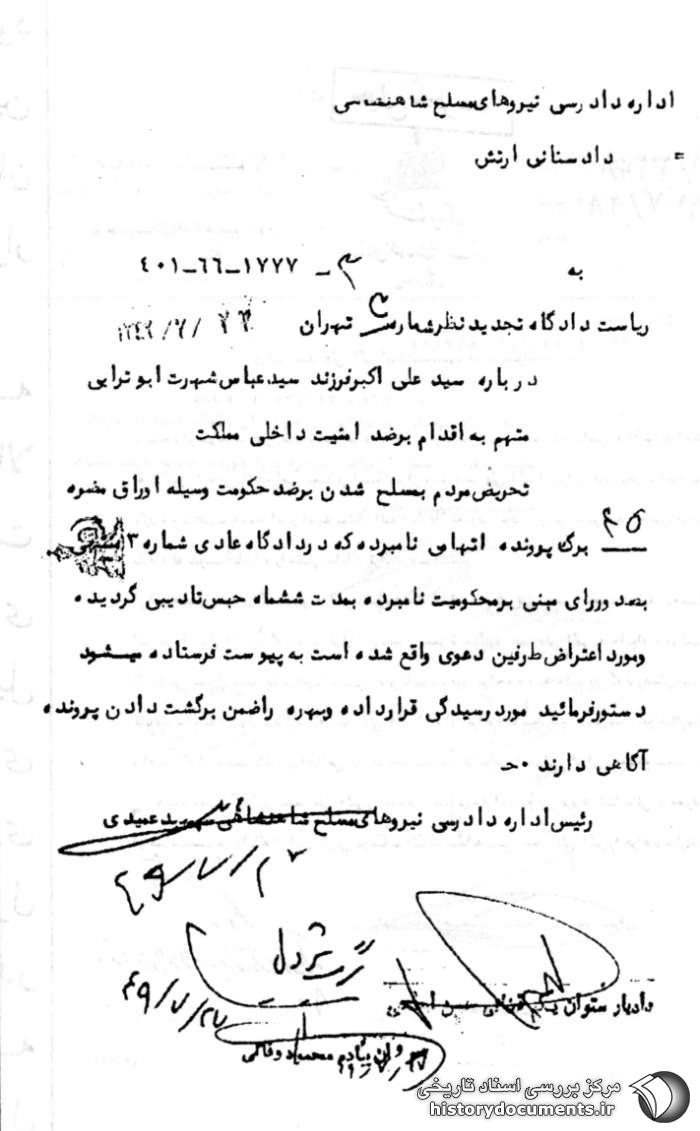 اداره دادرسی نیروهای مسلح شاهنشاهی
= دادستانی ارتش
به
۴۰۱-۶۶-۱۷۷۷-
ریاست دادگاه تجدید نظر شماره تهران
درباره سید علی اکبر فرزند سید عباس شهرت ابوترابی
متهم به اقدام بر ضد امنیت داخلی مملکت
تحریض مردم بمسلح شدن بر ضد حکومت وسیله اوراق مضره
برگ پرونده اتهامی نامبرده که در دادگاه عادی شماره ۳
بصدور رای مبنی بر محکومیت نامبرده بمدت ششماه حبس تادیبی گردیده
و مورد اعتراض طرفین دعوی واقع شده است به پیوست فرستاده میشود
دستور فرمائید مورد رسیدگی قرار داده و بهره را ضمن برگشت دادن پرونده
آگاهی دارند ۰ح
رئیس اداره دادرسی نیروهای مسلح شاهنشاهی سپهبد عمیدی
۴۹/۷/۲
۴۹/۷/۲۷
دادیار ستوان
محمد
مرکز بررسی اسناد تاریخی
historydocuments.ir